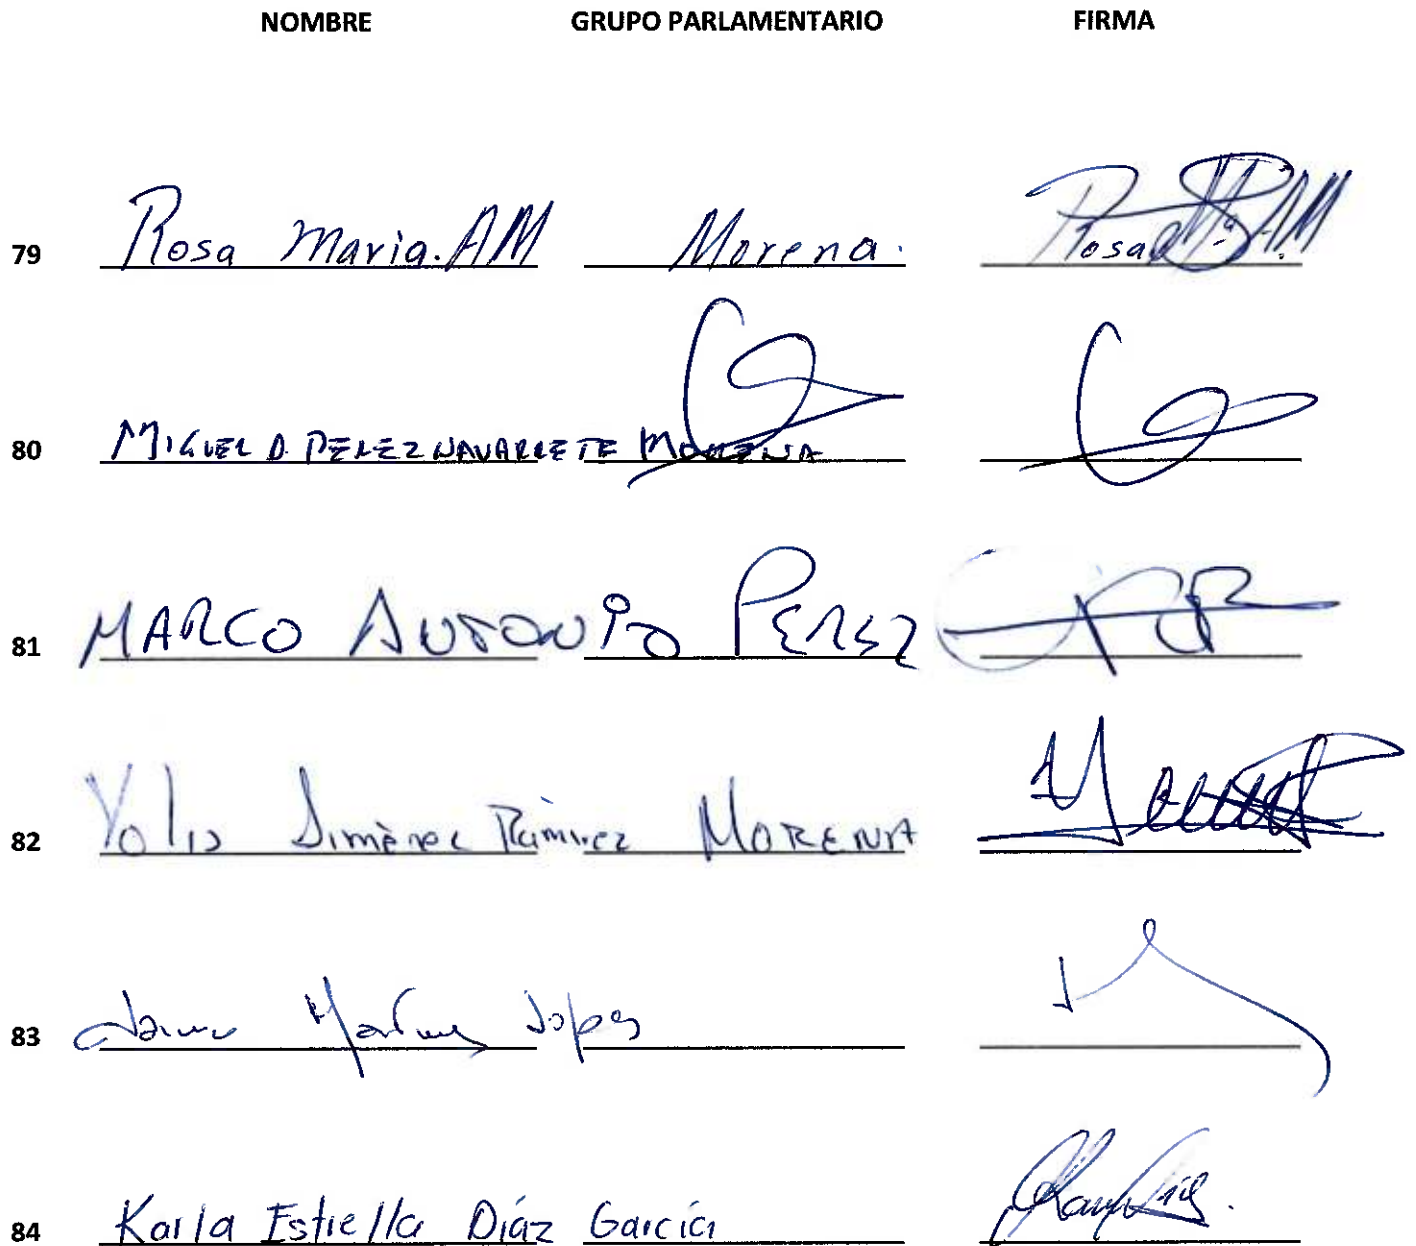 NOMBRE GRUPO PARLAMENTARIO FIRMA
79 Rosa Maria. AM Morena. Rosa Mª AM
80 MIGUEL D. PEREZ NAVARRETE MORENA
81 MARCO ANTONIO PEREZ
82 Yolis Jiménez Ramírez MORENA
83 Martinez Lopez
84 Karla Estrella Díaz García